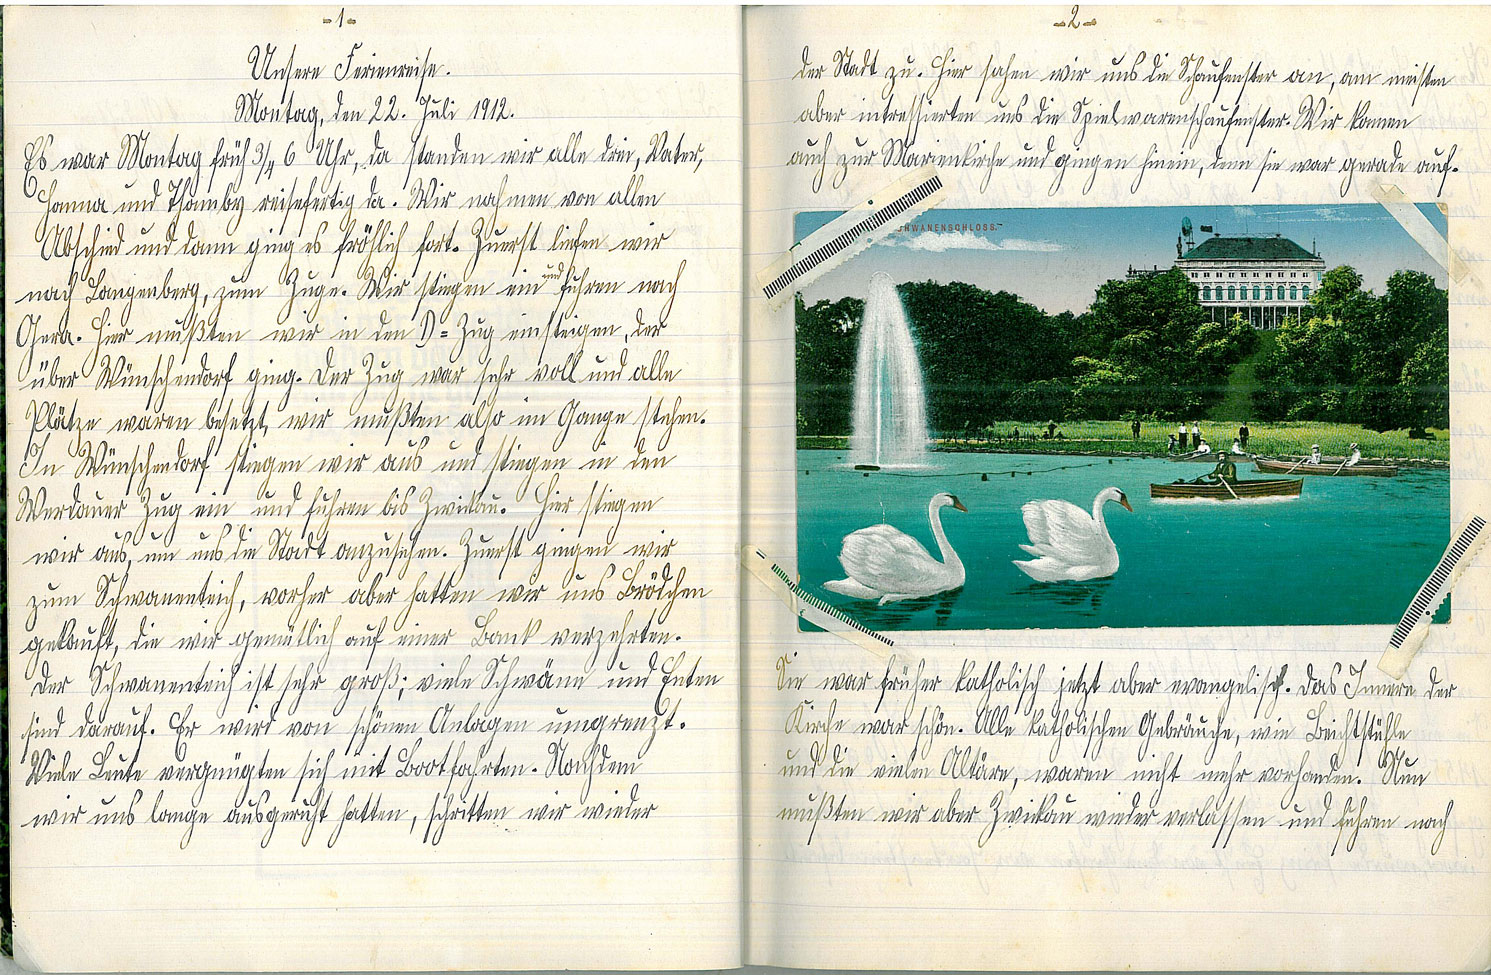 -1-
Unsere Ferienreise.
Montag, den 22. Juli 1912.
Es war Montag früh 3/4 6 Uhr, da standen wir alle drei, Vater,
Hanna und Thamby reisefertig da. Wir nahmen von allen
Abschied und dann ging es fröhlich fort. Zuerst liefen wir
nach Langenberg, zum Zuge. Wir stiegen ein und fuhren nach
Gera. Hier mußten wir in den D=Zug einsteigen, der
über Wünschendorf ging. Der Zug war sehr voll und alle
Plätze waren besetzt, wir mußten also im Gange stehen.
In Wünschendorf stiegen wir aus und stiegen in den
Werdauer Zug ein und fuhren bis Zwickau. Hier stiegen
wir aus, um uns die Stadt anzusehen. Zuerst gingen wir
zum Schwanenteich, vorher aber hatten wir uns Brödchen
gekauft, die wir gemütlich auf einer Bank verzehrten.
Der Schwanenteich ist sehr groß; viele Schwäne und Enten
sind darauf. Er wird von schönen Anlagen umgrenzt.
Viele Leute vergnügten sich mit Bootfahrten. Nachdem
wir uns lange ausgeruht hatten, schritten wir wieder
-2-
der Stadt zu. Hier sahen wir uns die Schaufenster an, am meisten
aber intressierten uns die Spielwarenschaufenster. Wir kamen
auch zur Marienkirche und gingen hinein, denn sie war gerade auf.
HWANENSCHLOSS.
Sie war früher katholisch jetzt aber evangelisch. Das Innere der
Kirche war schön. Alle katholischen Gebräuche, wie Beichtstühle
und die vielen Altäre, waren nicht mehr vorhanden. Nun
mußten wir aber Zwickau wieder verlassen und fuhren nach